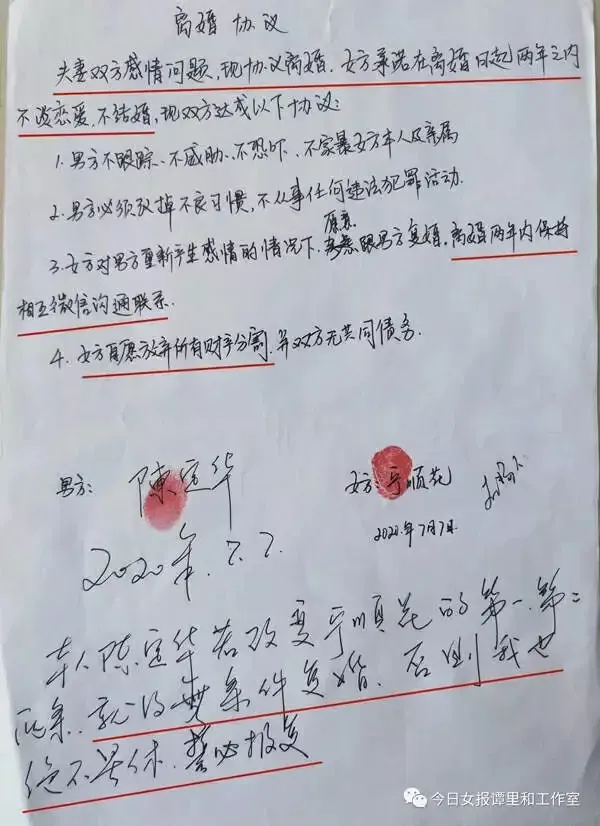 离婚协议
夫妻双方感情问题,现协议离婚.女方承诺在离婚日起两年之内
不谈恋爱,不结婚.现双方达成以下协议:
1.男方不跟踪、不威胁、不恐吓、不家暴女方本人及亲属
2.男方必须改掉不良习惯,不从事任何违法犯罪活动.
愿意
3.女方对男方重新产生感情的情况下.跟男方复婚.离婚两年内保持
相互微信沟通联系.
4.女方自愿放弃所有财产分割.并双方无共同债务.
男方:陳定华
女方:宁顺花
2020年7月7日
2020年.7.7.
本人陈定华若改变宁顺花的第一.第二
条.就得無条件复婚、否则我也
绝不罢休.誓必报复
今日女报谭里和工作室